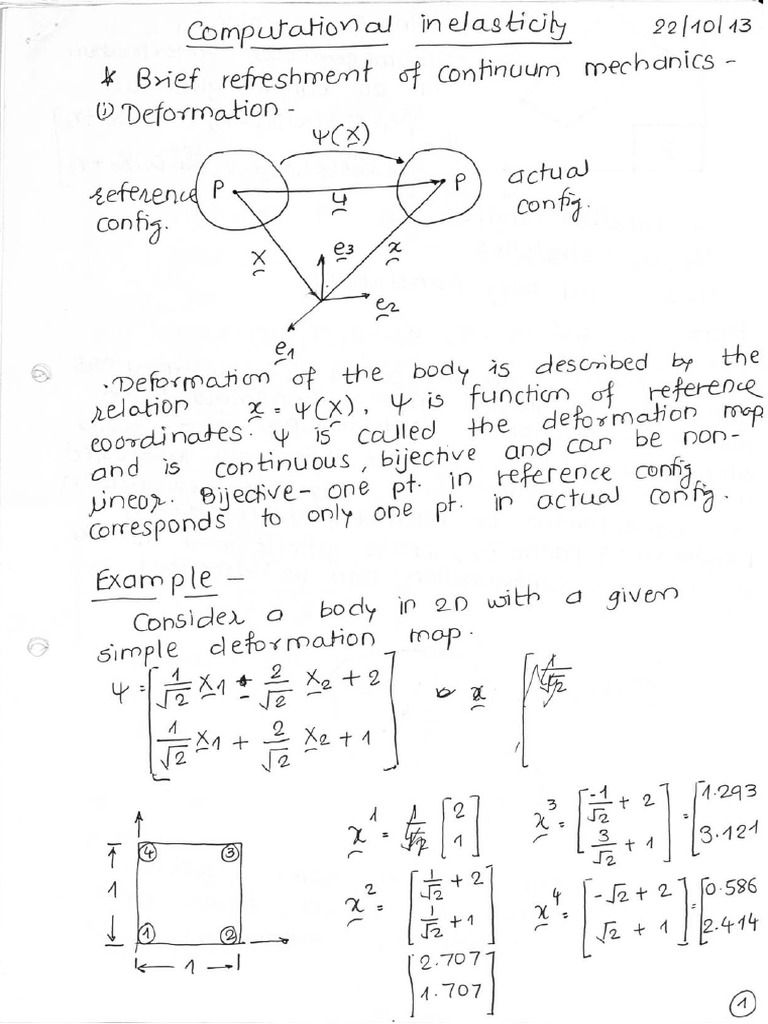 Computational inelasticity 22/10/13
* Brief refreshment of continuum mechanics -
(i) Deformation -
Ψ(X)
reference config.
P
u
P
actual config.
X
e3
x
e2
e1
. Deformation of the body is described by the
relation x = Ψ(X). Ψ is function of reference
coordinates. Ψ is called the deformation map
and is continuous, bijective and can be non-
linear. Bijective - one pt. in reference config
corresponds to only one pt. in actual config.
Example -
Consider a body in 2D with a given
simple deformation map.
Ψ = [1/√2 X1 - 2/√2 X2 + 2
1/√2 X1 + 2/√2 X2 + 1] x
4 3
1
1 2
1
x^1 = [2
1]
x^2 = [1/√2 + 2
1/√2 + 1]
[2.707
1.707]
x^3 = [-1/√2 + 2
3/√2 + 1] = [1.293
3.121
x^4 = [-√2 + 2
√2 + 1] = [0.586
2.414
1